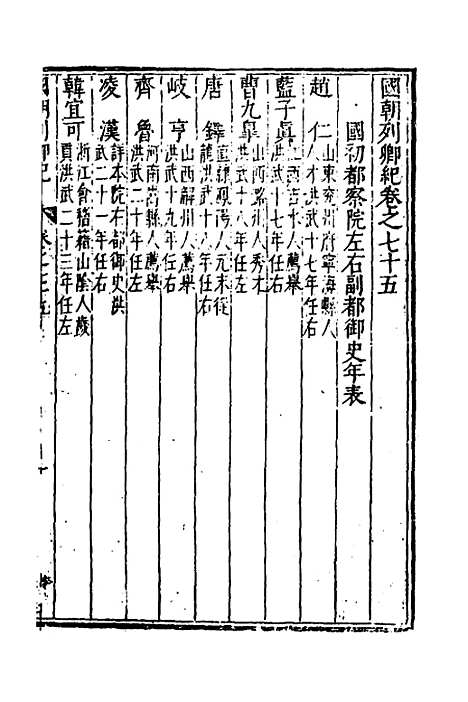 國朝列卿紀卷之七十五
國初都察院左右副都御史年表
趙仁 山東兗州府寧海縣人
人才洪武十七年任右
藍子眞 江西吉水人薦舉
洪武十七年任右
曹九臯 山西潞州人秀才
洪武十八年任左
唐鐸 直隸鳳陽人元末從
龍洪武十八年任右
岐亨 山西解州人薦舉
洪武十九年任右
齊魯 河南嵩縣人薦舉
洪武二十年任左
凌漢 詳本院右都御史洪
武二十一年任右
韓宜可 浙江會稽籍山陰人歲
貢洪武二十三年任左
國朝列卿紀
卷之七十五